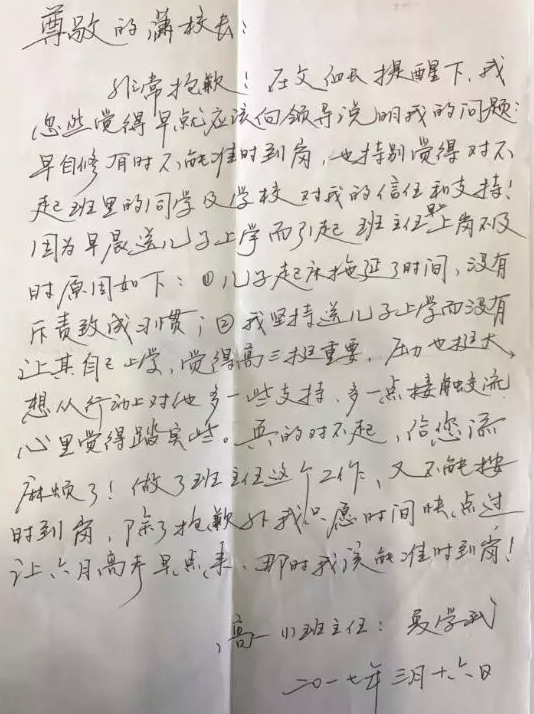 尊敬的潇校长：
非常抱歉！在文组长提醒下，我
忽然觉得早就应该向领导说明我的问题：
早自修有时不能准时到岗，也特别觉得对不
起班里的同学及学校对我的信任和支持！
因为早晨送儿子上学而引起班主任早上岗不及
时原因如下：①儿子起床拖延了时间，没有
斥责致成习惯；②我坚持送儿子上学而没有
让其自己上学，觉得高三挺重要，压力也挺大，
想从行动上对他多一些支持、多一点接触交流
心里觉得踏实些。真的对不起，给您添
麻烦了！做了班主任这个工作，又不能按
时到岗，除了抱歉外我只愿时间快点过
让六月高考早点来、那时我该能准时到岗！
高一(1)班主任：吴学武
二〇一七年三月十六日